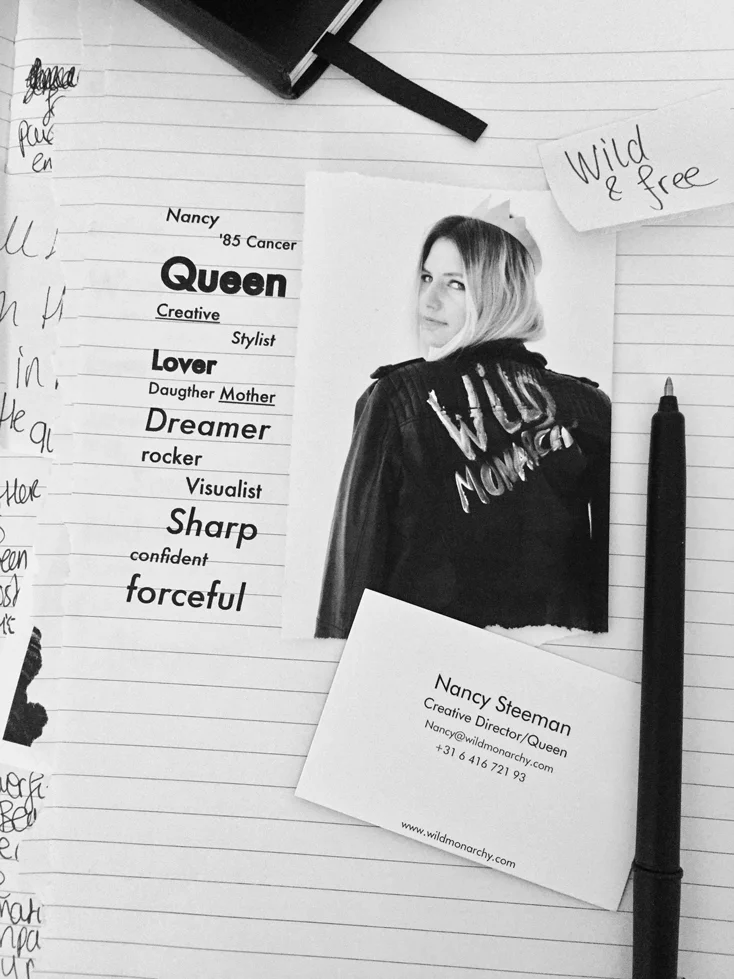 en
in,
Wild
& free
Nancy
'85 Cancer
Queen
Creative
Stylist
Lover
Daugther Mother
Dreamer
rocker
Visualist
Sharp
confident
forceful
WILD
MONARCH
Nancy Steeman
Creative Director/Queen
Nancy@wildmonarchy.com
+31 6 416 721 93
www.wildmonarchy.com